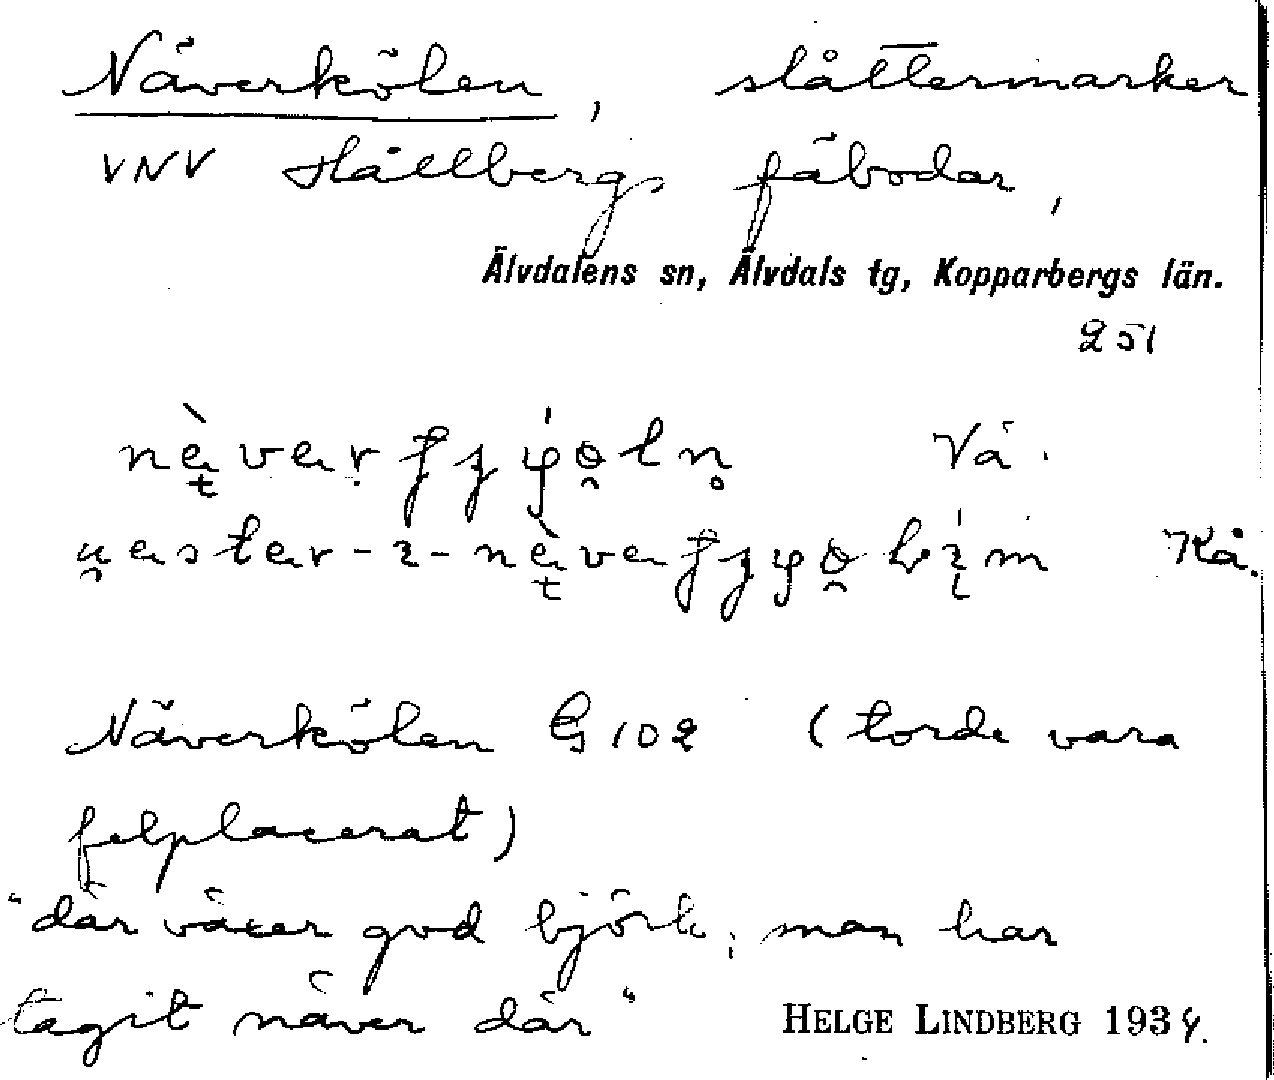 Näverkölen, slåttermarker
VNV Hållbergs fäbodar,
Älvdalens sn, Älvdals tg, Kopparbergs län.
251
Vå.
Kå.
Näverkölen G 102 (torde vara
felplacerat)
"där växer god björk; man har
tagit näver där"
HELGE LINDBERG 1934.